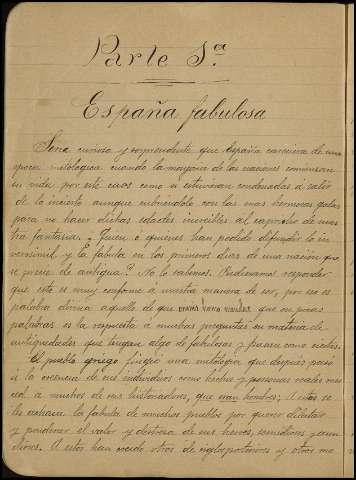 Parte 1ª
España fabulosa
Seria curioso y sorprendente que España careciera de una
epoca mitologica cuando la mayoria de las naciones comienzan
su vida por este caos como si estuvieran condenadas á salir
de lo incierto aunque nebuloso con las mas hermosas galas
para no hacer dichas edades increibles al capricho de nues
tra fantasia. ¿Quien ó quienes han podido difundir lo in
verosimil y la fabula en los primeros dias de una nación que
se precie de antigua? No lo sabemos. Pudieramos responder
que esto es muy conforme á nuestra manera de ser, por eso es
palabra divina aquello de que omnis homo mendax que en pocas
palabras es la respuesta á muchas preguntas en materia de
antigüedades que tengan algo de fabulosas y pasan como ciertas.
El pueblo griego fraguó una mitologia que después pasó
á la creencia de sus individuos como hechos y personas reales mer
ced á muchos de sus historiadores, que eran hombres; A estos se
les achaca la fabula de muchos pueblos por querer delatar
y ponderar el valor y destreza de sus heroes, semidioses y aun
dioses. A estos han seguido otros de siglos posteriores y otros mo